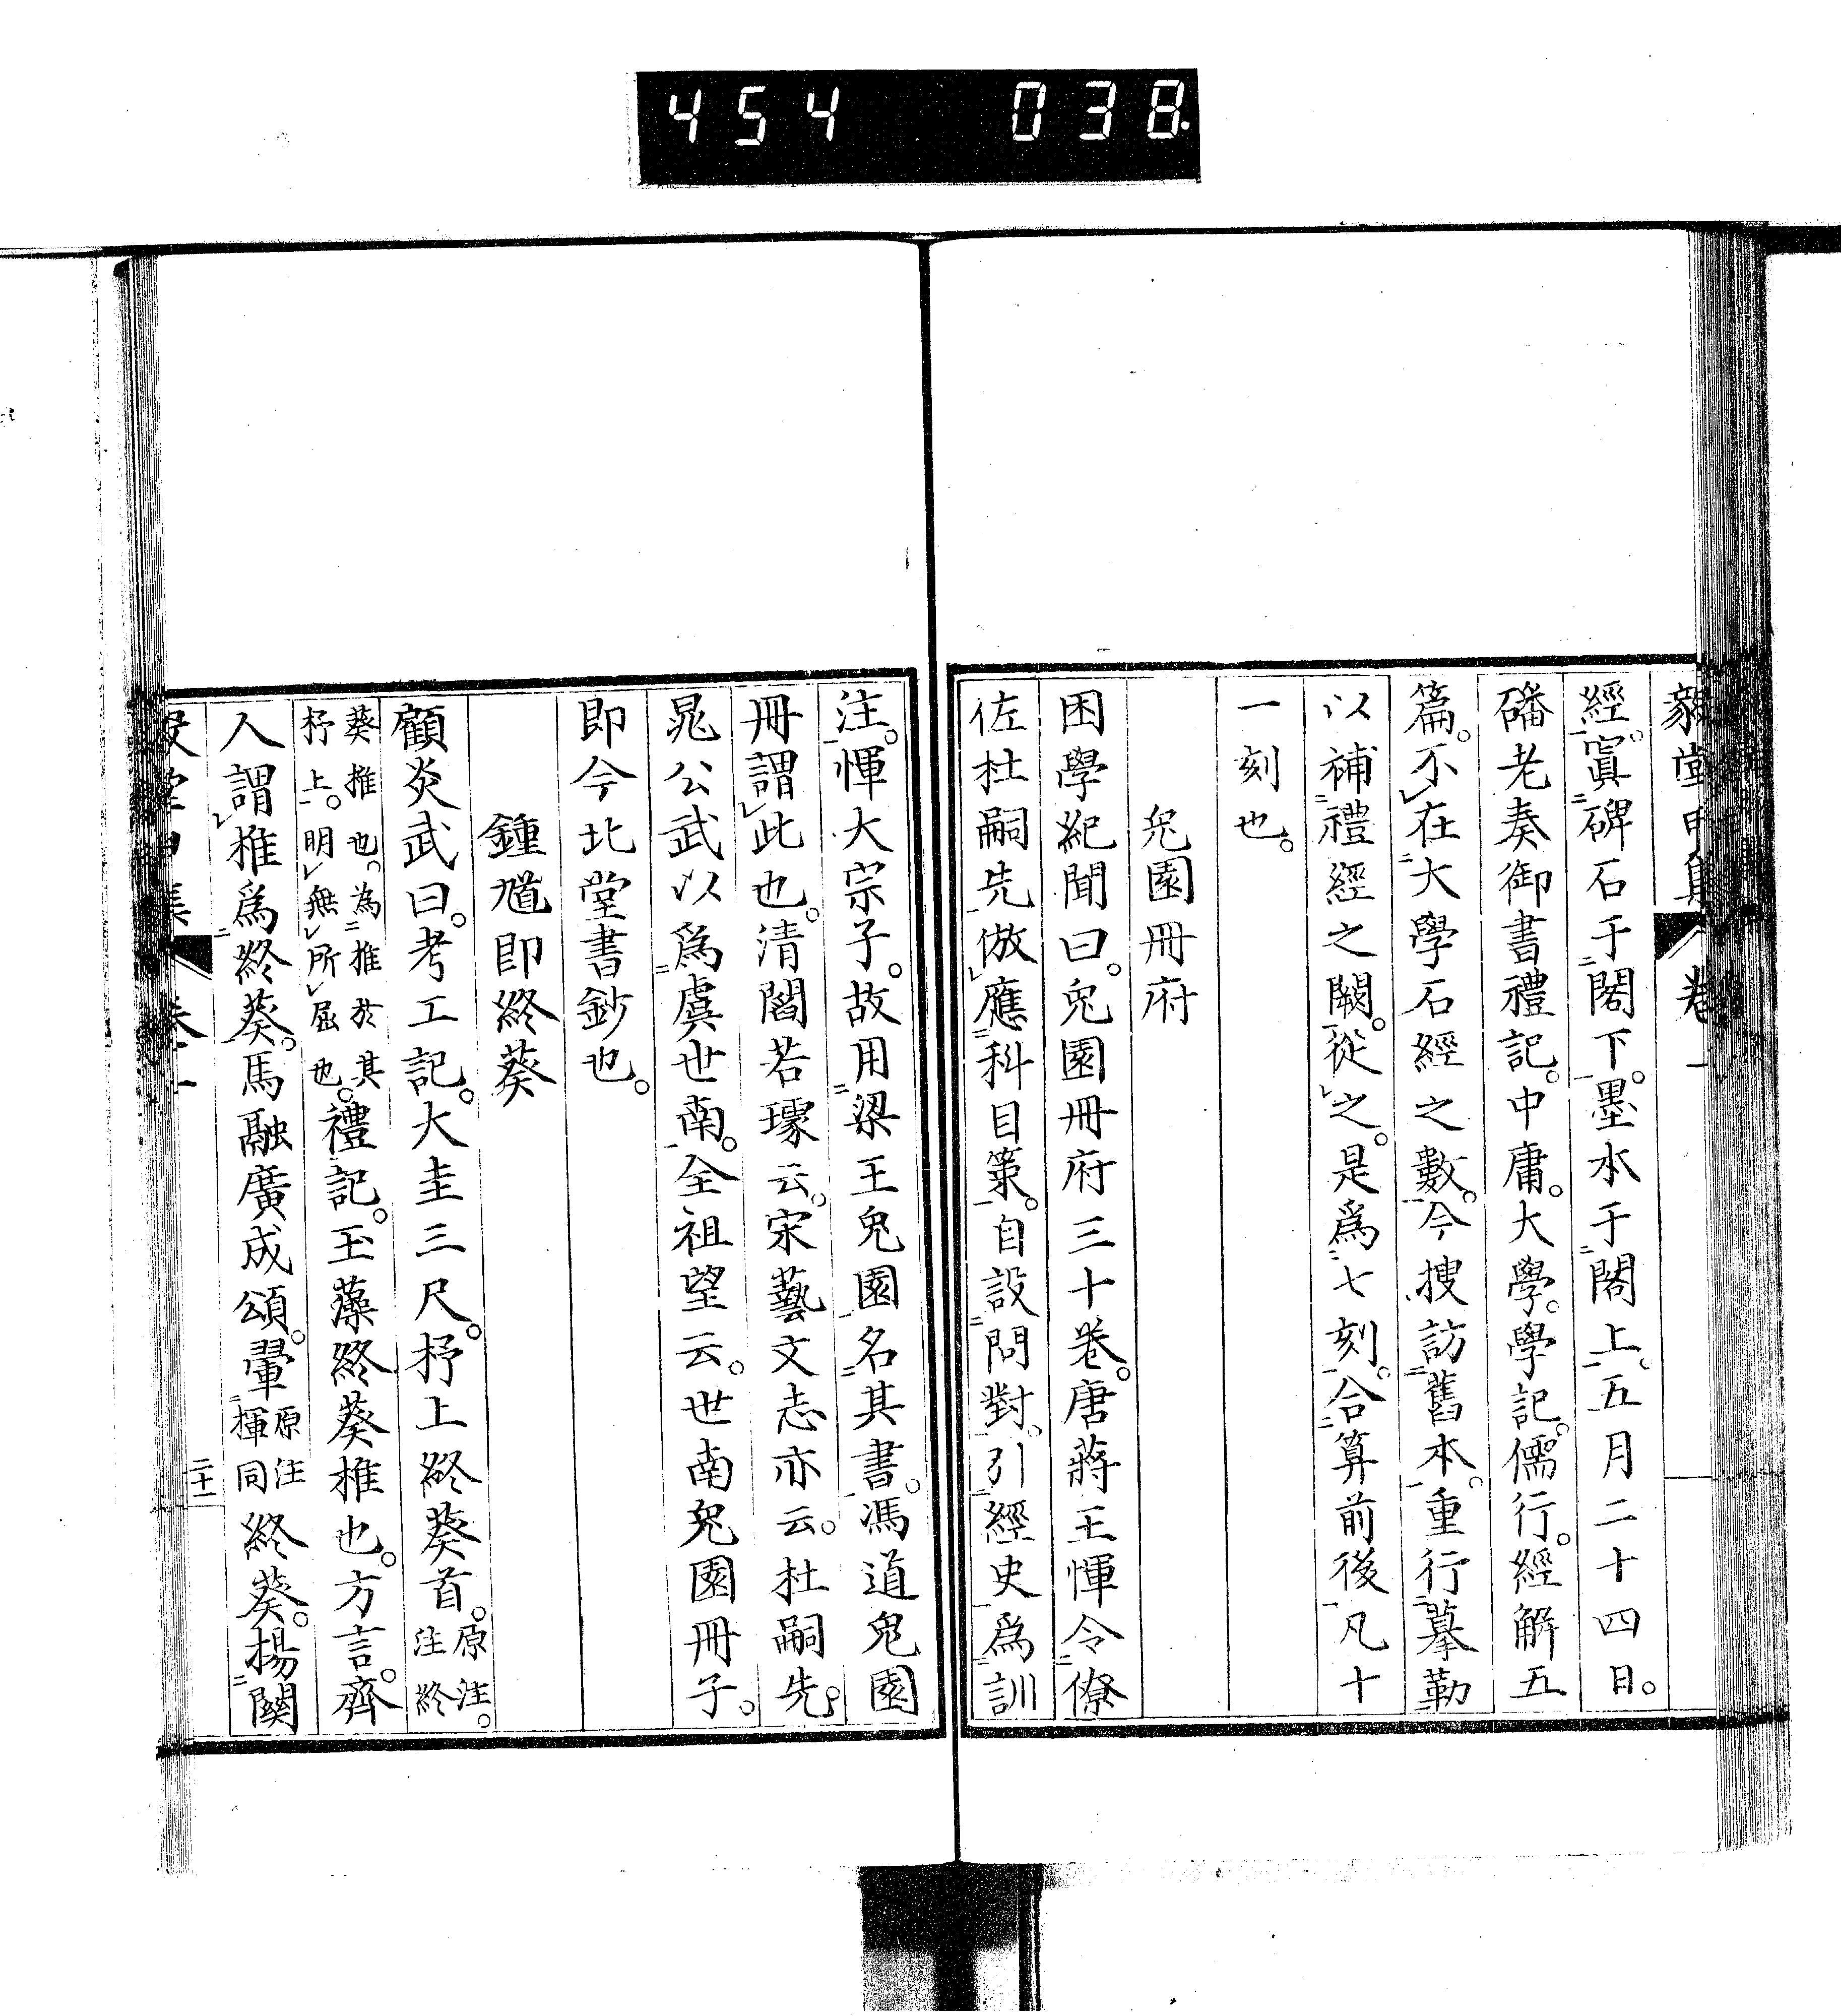 454 038.
經。寘碑石于閣下。墨本于閣上。五月二十四日。
磻老奏御書禮記。中庸。大學。學記。儒行。經解五
篇。不在大學石經之數。今搜訪舊本。重行摹勒
以補禮經之闕。從之。是爲七刻。合算前後凡十
一刻也。
兔園冊府
困學紀聞曰。兔園冊府三十卷。唐蔣王惲令僚
佐杜嗣先倣應科目策。自設問對。引經史爲訓
注。惲大宗子。故用梁王兔園名其書。馮道兔園
冊謂此也。清閻若璩云。宋藝文志亦云。杜嗣先。
晁公武以爲虞世南。全祖望云。世南兔園冊子。
即今北堂書鈔也。
鍾馗即終葵
顧炎武曰。考工記。大圭三尺。杼上終葵首。原注。終
葵椎也。為椎於其杼上。明無所屈也。禮記。玉藻終葵椎也。方言。齊
人謂椎爲終葵。馬融廣成頌。翬原注揮同終葵。揚關
二十一